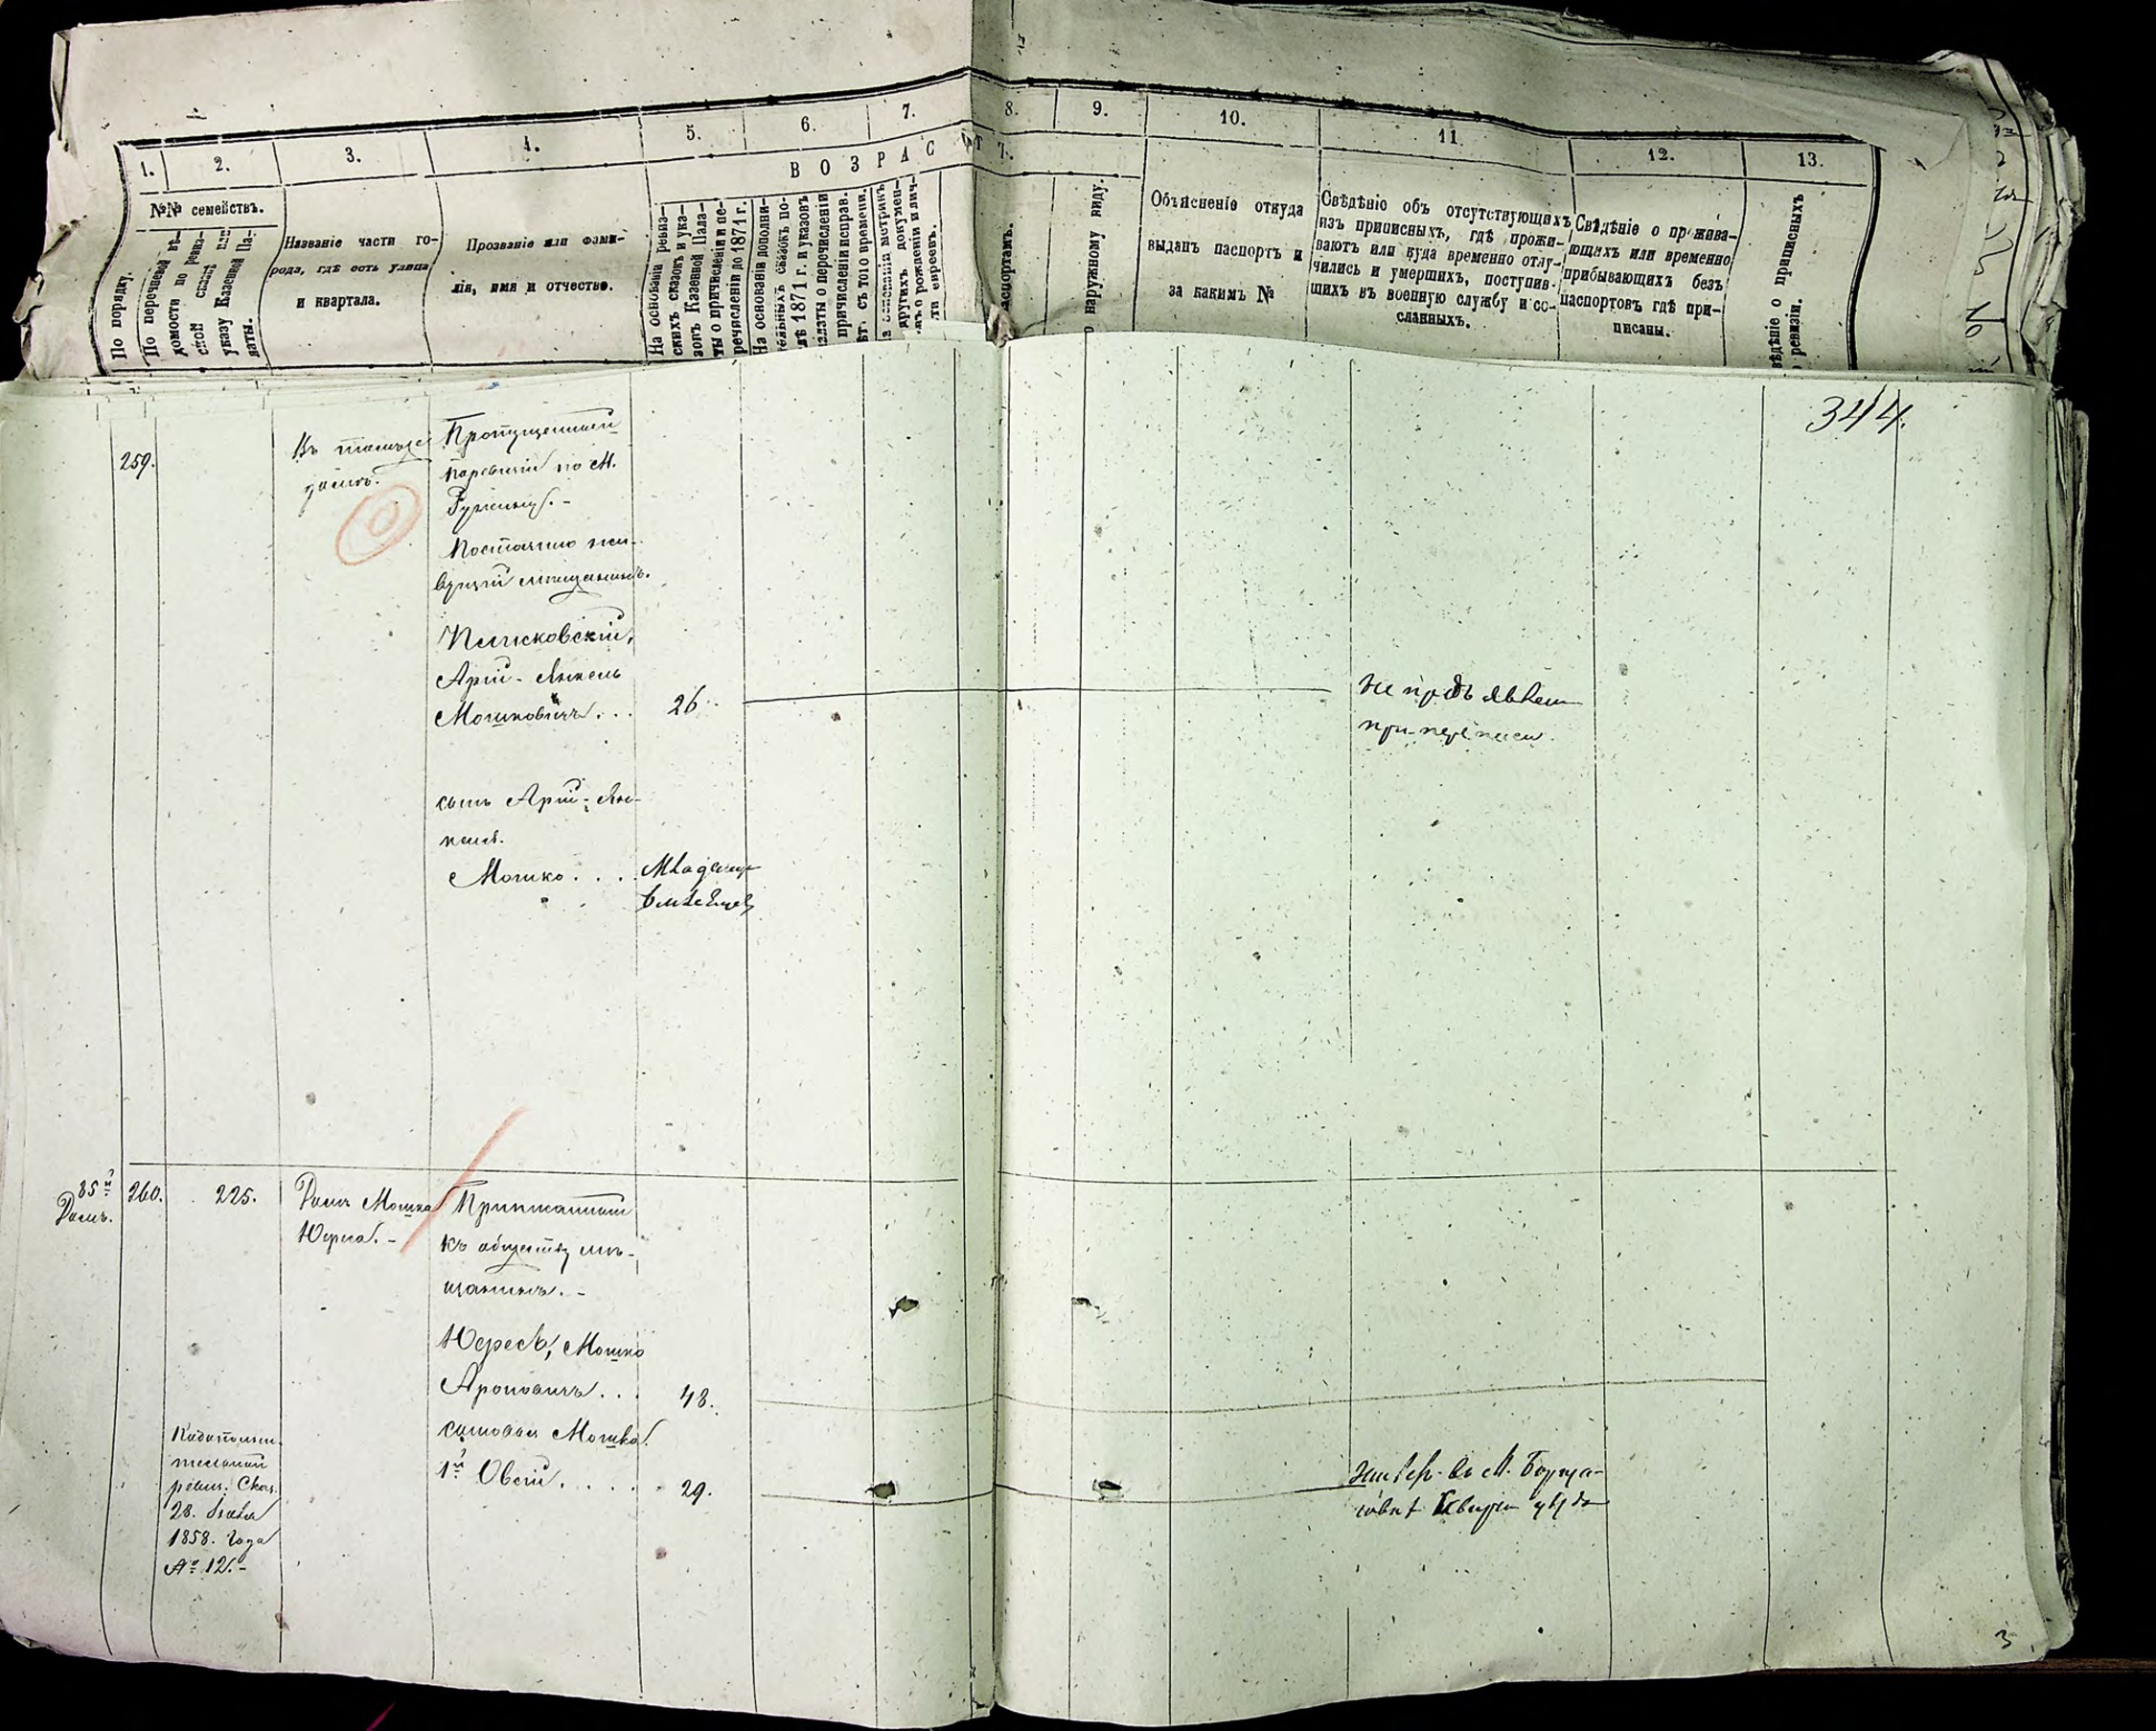 1.
2.
3.
4.
5.
6.
7.
8.
9.
10.
11.
12.
13.
ВОЗРАСТЪ.
№№ семействъ.
По порядку.
По перечневой вѣ-
домости по ревиз-
ской сказкѣ или
указу Казенной Па-
латы.
Названіе части го-
рода, гдѣ есть улица
и квартала.
Прозваніе или фами-
лія, имя и отчество.
На основаніи ревиз-
скихъ сказокъ и ука-
зовъ Казенной Пала-
ты о причисленіи и пе-
речисленіи до 1871 г.
На основаніи дополни-
тельныхъ сказокъ по-
слѣ 1871 г. и указовъ
палаты о перечисленіи
причисленіи исправ.
лѣтъ съ того времени.
На основаніи метрикъ
другихъ докумен-
о рожденіи и лич-
евреевъ.
паспортамъ.
наружному виду.
Объясненіе откуда
выданъ паспортъ и
за какимъ №
Свѣдѣніе объ отсутствующихъ
изъ приписныхъ, гдѣ прожи-
ваютъ или куда временно отлу-
чились и умершихъ, поступив-
шихъ въ военную службу и со-
сланныхъ.
Свѣдѣніе о прожива-
ющихъ или временно
прибывающихъ безъ
паспортовъ гдѣ при-
писаны.
свѣдѣніе о приписныхъ
ревизіи.
344.
259.
Въ томъ же
домѣ.
Пропущенный
по ревизіи по М.
Ружину. -
Постоянно жи-
вущій мѣщанинъ.
Арій-Янкель
Мошковичъ . . .
26.
не предъявленъ
при переписи.
сынъ Арій-Ян-
келя.
Мошко . . . .
Младенцемъ
85й
Домъ.
260.
225.
Домъ Мошка
Юреса. -
Приписанный
къ обществу мѣ-
щанинъ. -
Юресъ, Мошко
Ароновичъ . . .
48.
сыновья Мошка.
1й Овсій . . . . .
29.
По дополни-
тельной
ревиз. Сказ.
28.
1858. Года
№ 12. -
въ М.
уѣзда
3